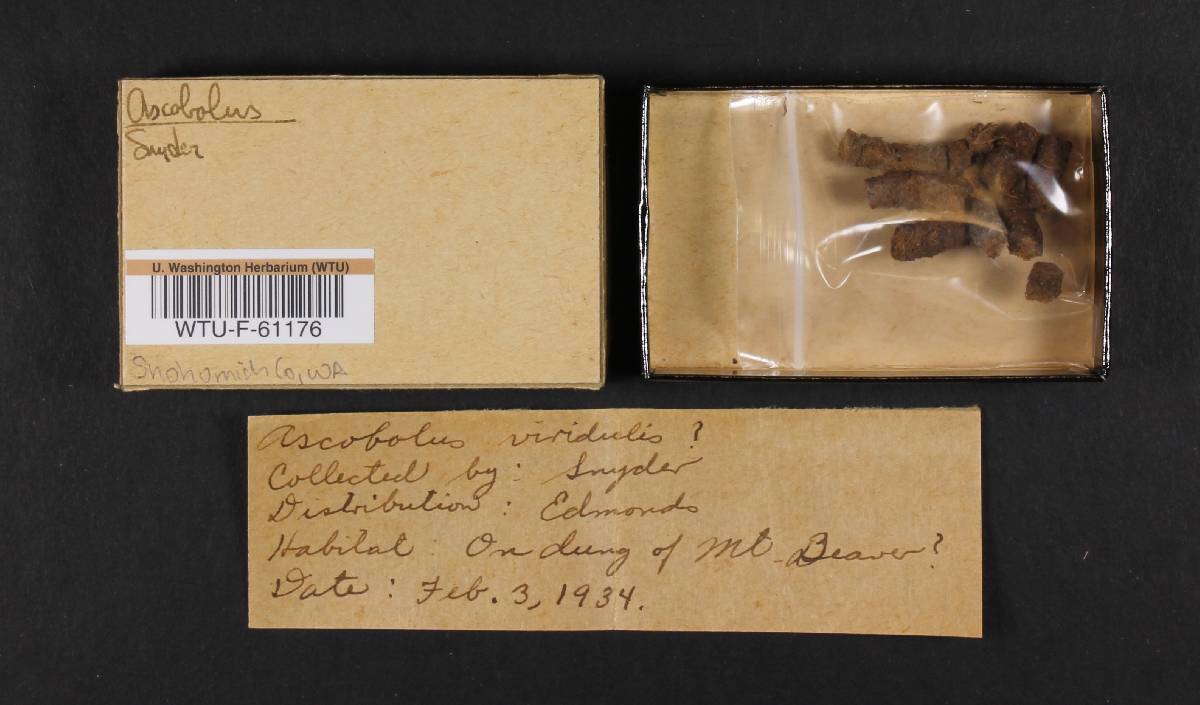 Ascobolus
Snyder
U. Washington Herbarium (WTU)
WTU-F-61176
Snohomish Co, WA
Ascobolus viridulis ?
Collected by : Snyder
Distribution : Edmonds
Habitat : On dung of Mt. Beaver?
Date : Feb. 3, 1934.